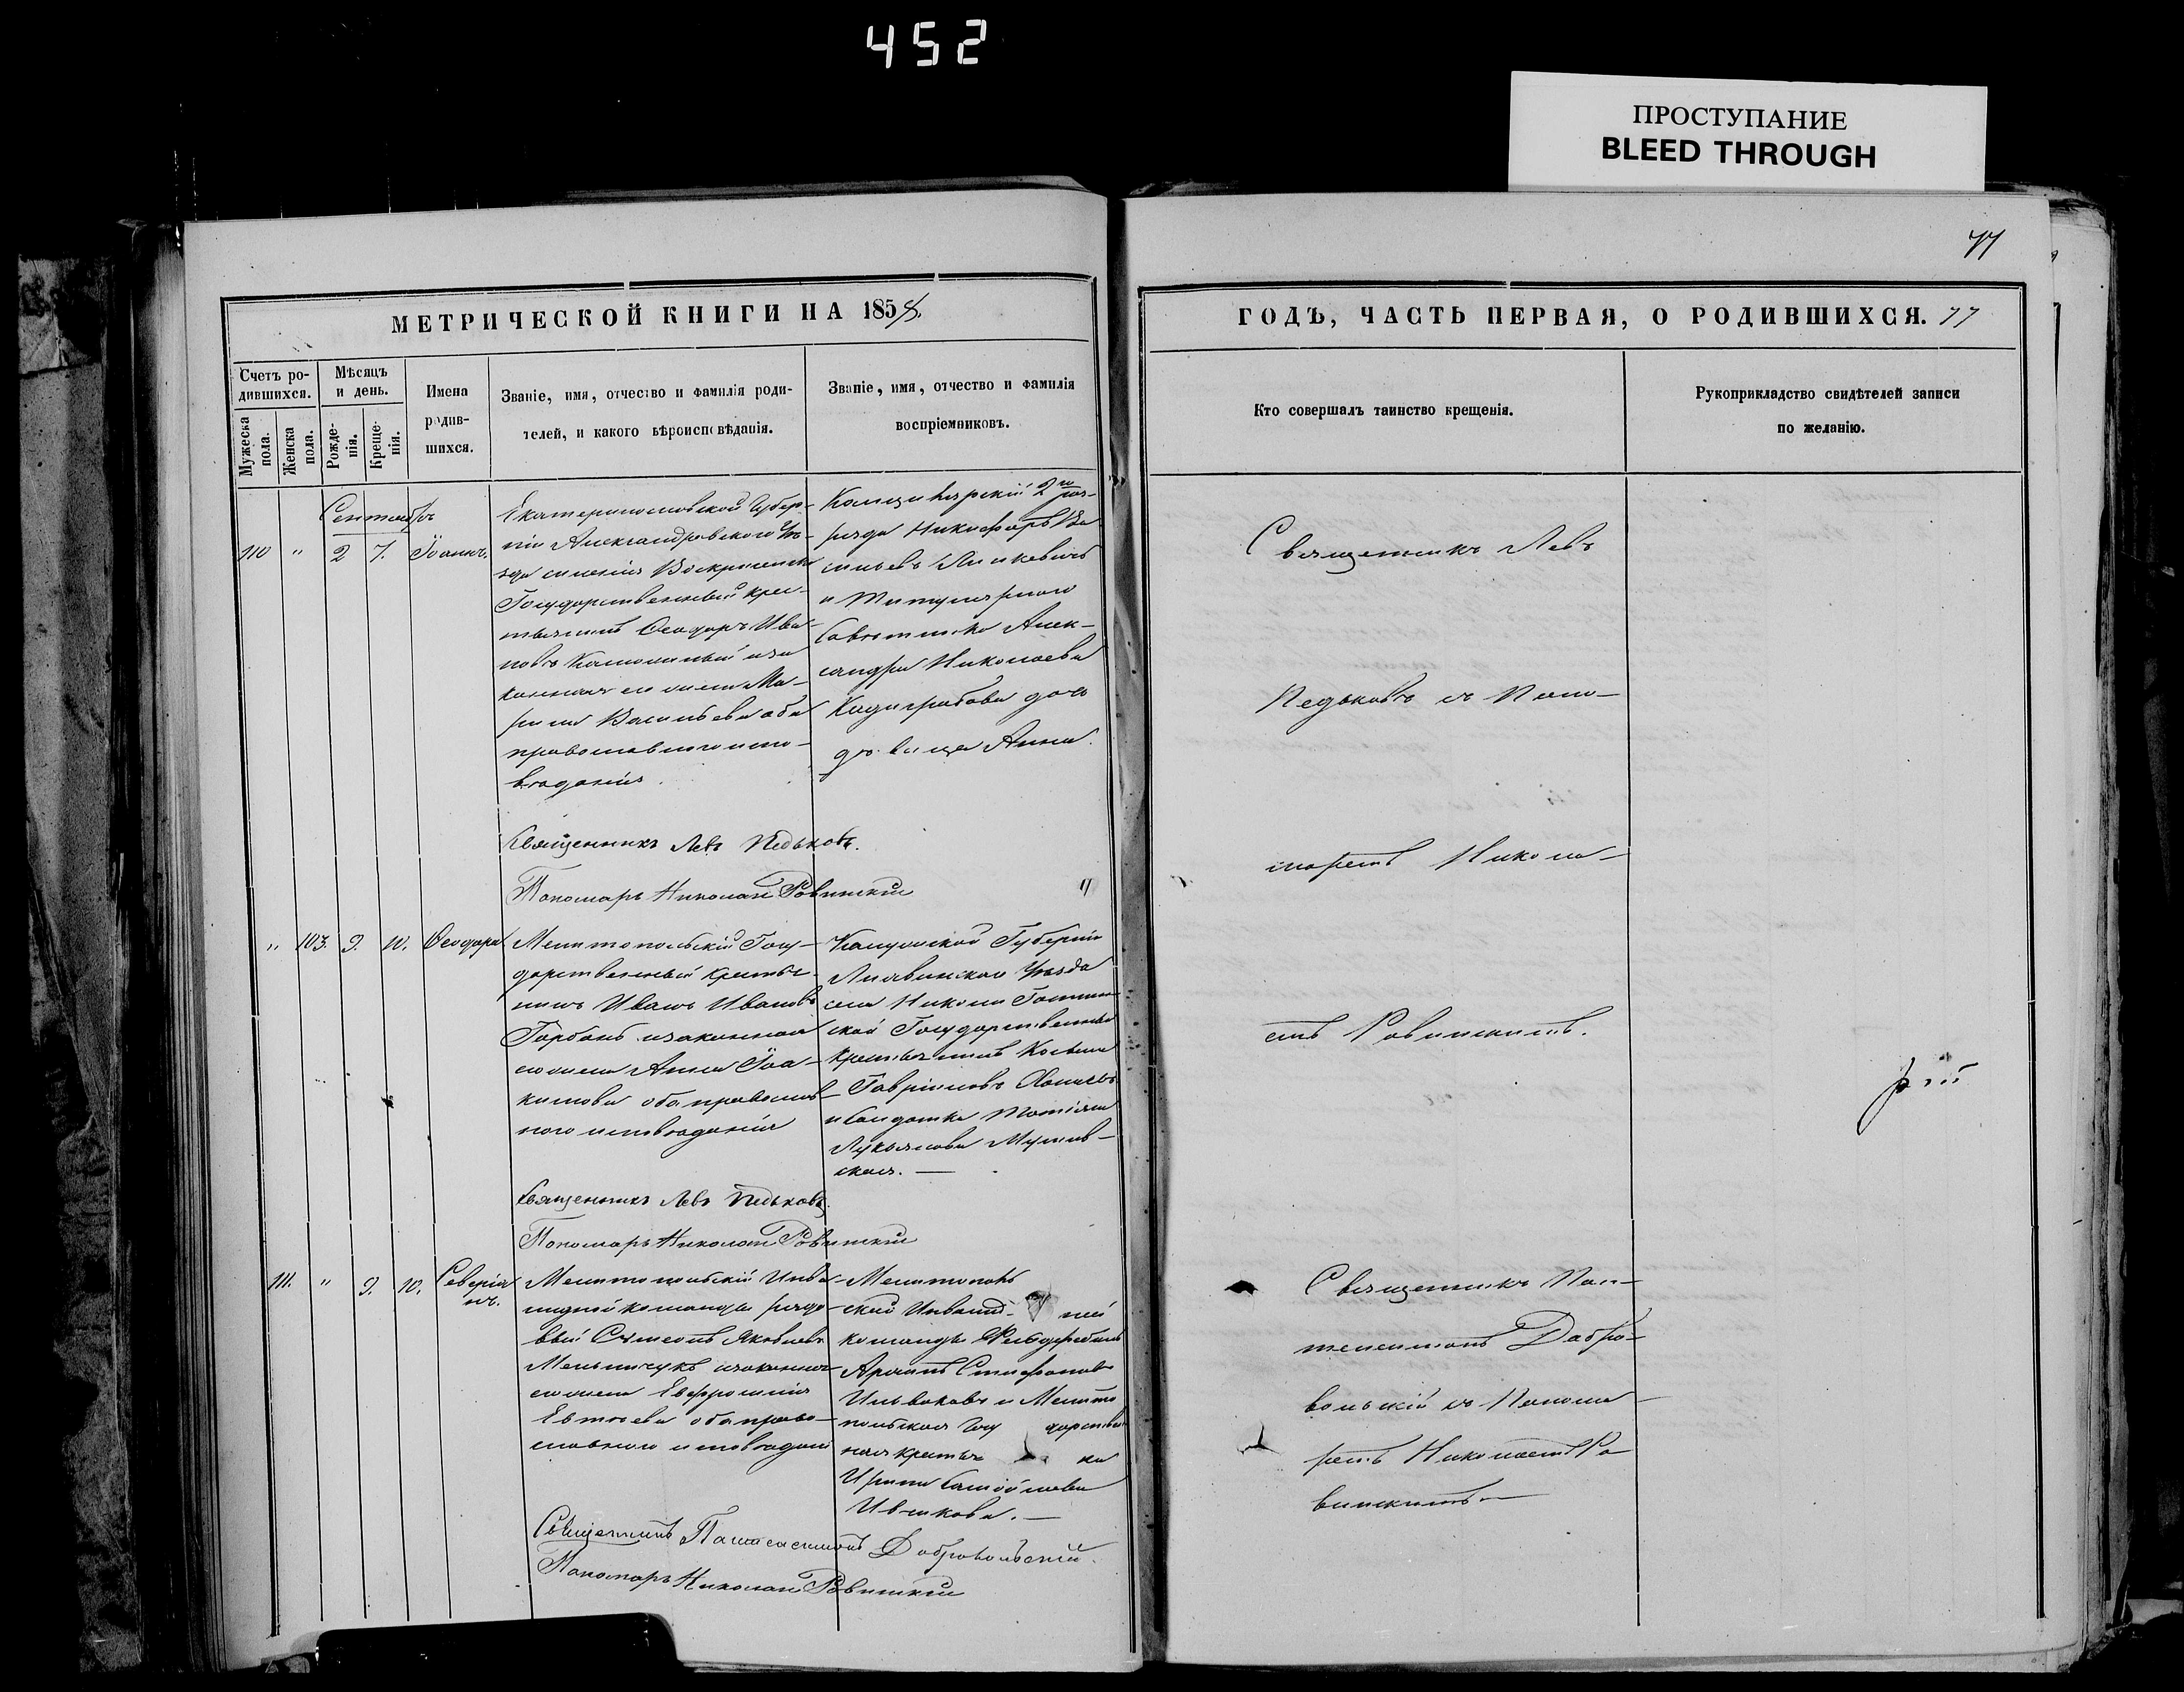 452
ПРОСТУПАНИЕ
BLEED THROUGH
77
МЕТРИЧЕСКОЙ КНИГИ НА 1858.
ГОДЪ, ЧАСТЬ ПЕРВАЯ, О РОДИВШИХСЯ. 77
Счетъ ро-
дившихся.
Мужеска
пола.
Женска
пола.
Мѣсяцъ
и день.
Рожде-
нія.
Креще-
нія.
Имена
родив-
шихся.
Званіе, имя, отчество и фамилія роди-
телей, и какого вѣроисповѣданія.
Званіе, имя, отчество и фамилія
воспріемниковъ.
Кто совершалъ таинство крещенія.
Рукоприкладство свидѣтелей записи
по желанію.
Сентябрь
110 " 2 7. Іоаннъ.
Екатеринославской Губер-
ніи Александровскаго Уѣ-
зда селенія Воскресенки
Государственный крес-
тьянинъ Ѳеодоръ Ива-
новъ и за-
конная его жена Ма-
рина Васильева оба
православнаго испо-
вѣданія.
Канцелярскій 2го раз-
ряда Никифоръ Ва-
сильевъ
и Титулярнаго
Совѣтника Алек-
сандра Николаева
дочь
дѣвица Анна.
Священникъ Левъ
Педьковъ съ Поно-
маремъ Никола-
емъ Ровинскимъ.
Священникъ Левъ Педьковъ.
Пономарь Николай Ровинскій
" 103. 9. 10. Ѳеодора
Мелитопольскій Госу-
дарственный крестья-
нинъ Иванъ Ивановъ
Горбань и законная
его жена Анна Іоа-
кимова оба православ-
наго исповѣданія
Калужской Губерніи
Лихвинскаго Уѣзда
села Николы
Государственный
крестьянинъ Косьма
Гавріиловъ
и Солдатка
Лукьянова
ская.
Священникъ Левъ Педьковъ.
Пономарь Николай Ровинскій
111. " 9. 10. Северія-
нъ.
Мелитопольскій Инва-
лидной команды рядо-
вый Сѵмеонъ Яковлевъ
Мельничукъ и законная
его жена Евфросинія
Евтіева оба право-
славнаго исповѣданія
Мелитополь-
ской Инвалид- ной
команды Фельдфебель
Стефановъ
и Мелито
польская Госу дарствен
ная крестья ка
Ирина Самойлова
Ивчкова.
Священникъ Пан-
телеимонъ Добро-
вольскій съ Понома-
ремъ Николаемъ Ро-
винскимъ
Священникъ Пантелеимонъ Добровольскій.
Пономарь Николай Ровинскій